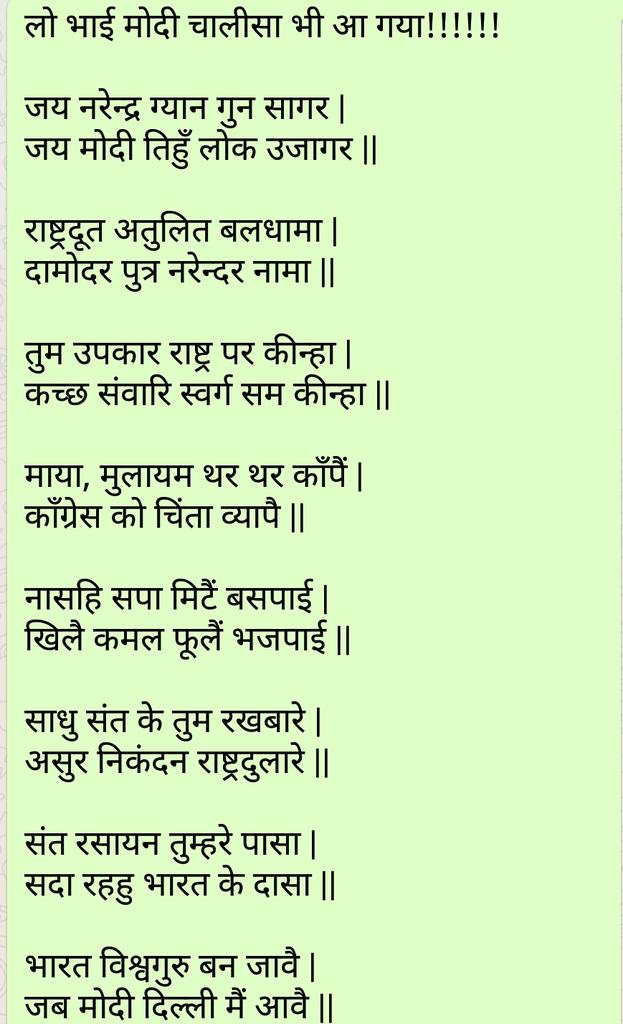 लो भाई मोदी चालीसा भी आ गया!!!!!!
जय नरेन्द्र ग्यान गुन सागर |
जय मोदी तिहुँ लोक उजागर ||
राष्ट्रदूत अतुलित बलधामा |
दामोदर पुत्र नरेन्दर नामा ||
तुम उपकार राष्ट्र पर कीन्हा |
कच्छ संवारि स्वर्ग सम कीन्हा ||
माया, मुलायम थर थर काँपैं |
काँग्रेस को चिंता व्यापै ||
नासहि सपा मिटैं बसपाई |
खिलै कमल फूलैं भजपाई ||
साधु संत के तुम रखबारे |
असुर निकंदन राष्ट्रदुलारे ||
संत रसायन तुम्हरे पासा |
सदा रहहु भारत के दासा ||
भारत विश्वगुरु बन जावै |
जब मोदी दिल्ली मैं आवै ||